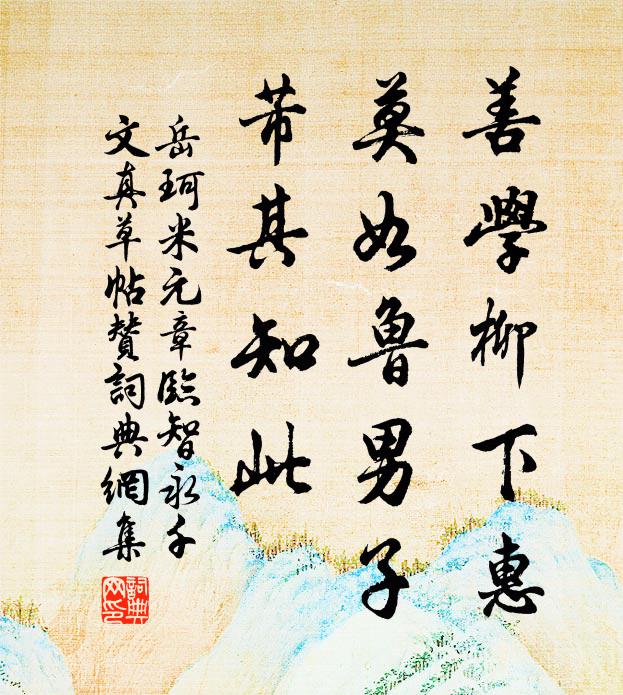 善學柳下惠
莫如魯男子
芾其知此
岳珂米元章臨智永千
文真草帖贊詞典網集
詞典
网印